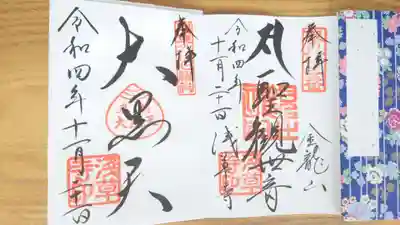 奉拝
金龍山
聖観世音
浅草寺
令和四年
十一月二十一日
奉拝
大黒天
令和四年十一月二十一日
浅草寺印